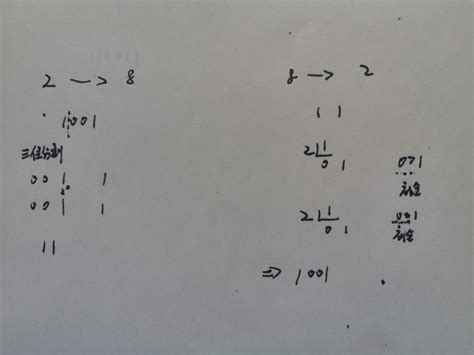 2 → 8
1001
三位分割
001 1
2⁰
001 1
11
8 → 2
11
2 1
0 1
001
补全
2 1
0 1
001
补全
⇒ 1001